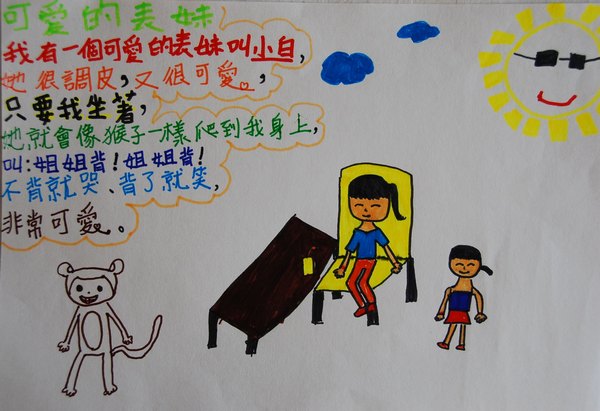 可愛的表妹
我有一個可愛的表妹叫小白,
她很調皮,又很可愛。,
只要我坐著,
她就會像猴子一樣爬到我身上,
叫:姐姐背!姐姐背!
不背就哭、背了就笑,
非常可愛。